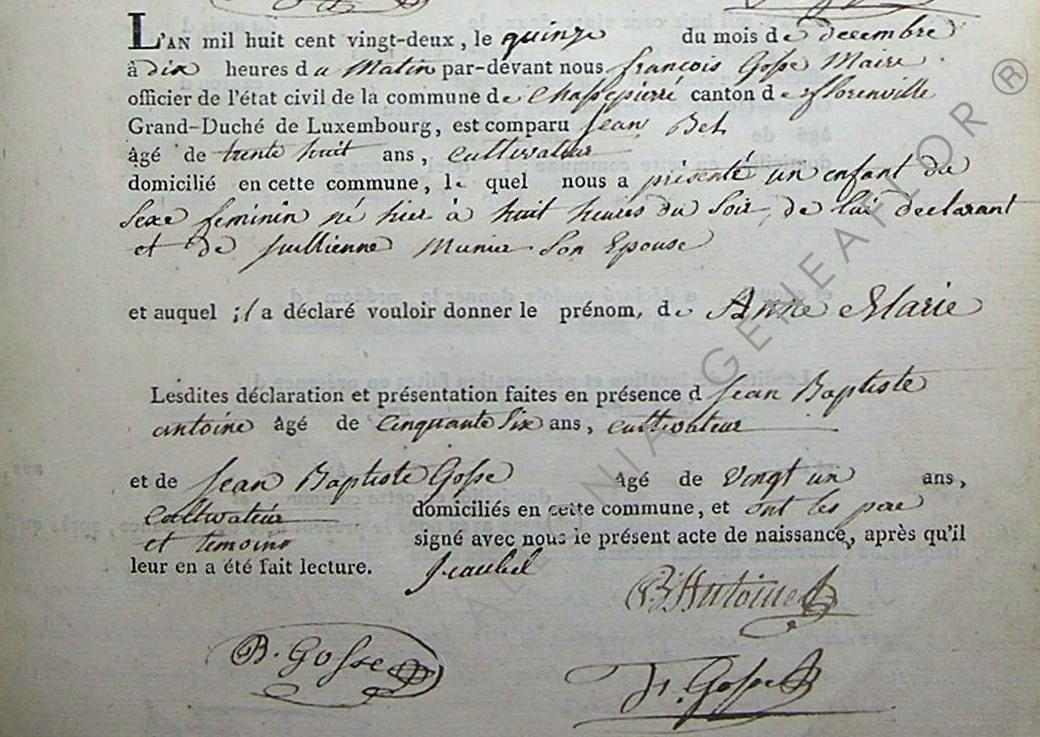 L'AN mil huit cent vingt-deux, le quinze du mois de decembre
à dix heures du Matin par-devant nous françois Gosse Maire
officier de l'état civil de la commune de Chassepierré canton de florenville
Grand-Duché de Luxembourg, est comparu Jean Bel
âgé de trente huit ans, cultivateur
domicilié en cette commune, le quel nous a présenté un enfant du
Sexe feminin né hier à huit heures du Soir, de lui declarant
et de Jullienne Munier Son Epouse
et auquel il a déclaré vouloir donner le prénom, de Anne Marie
Lesdites déclaration et présentation faites en présence d Jean Baptiste
antoine âgé de Cinquante Six ans, cultivateur
et de Jean Baptiste Gosse Agé de vingt un ans,
Cultivateur domiciliés en cette commune, et ont les pere
et temoins signé avec nous le présent acte de naissance, après qu'il
leur en a été fait lecture. Jeanbel
B. Antoine
B. Gosse
F. Gosse
GENEALOR ®